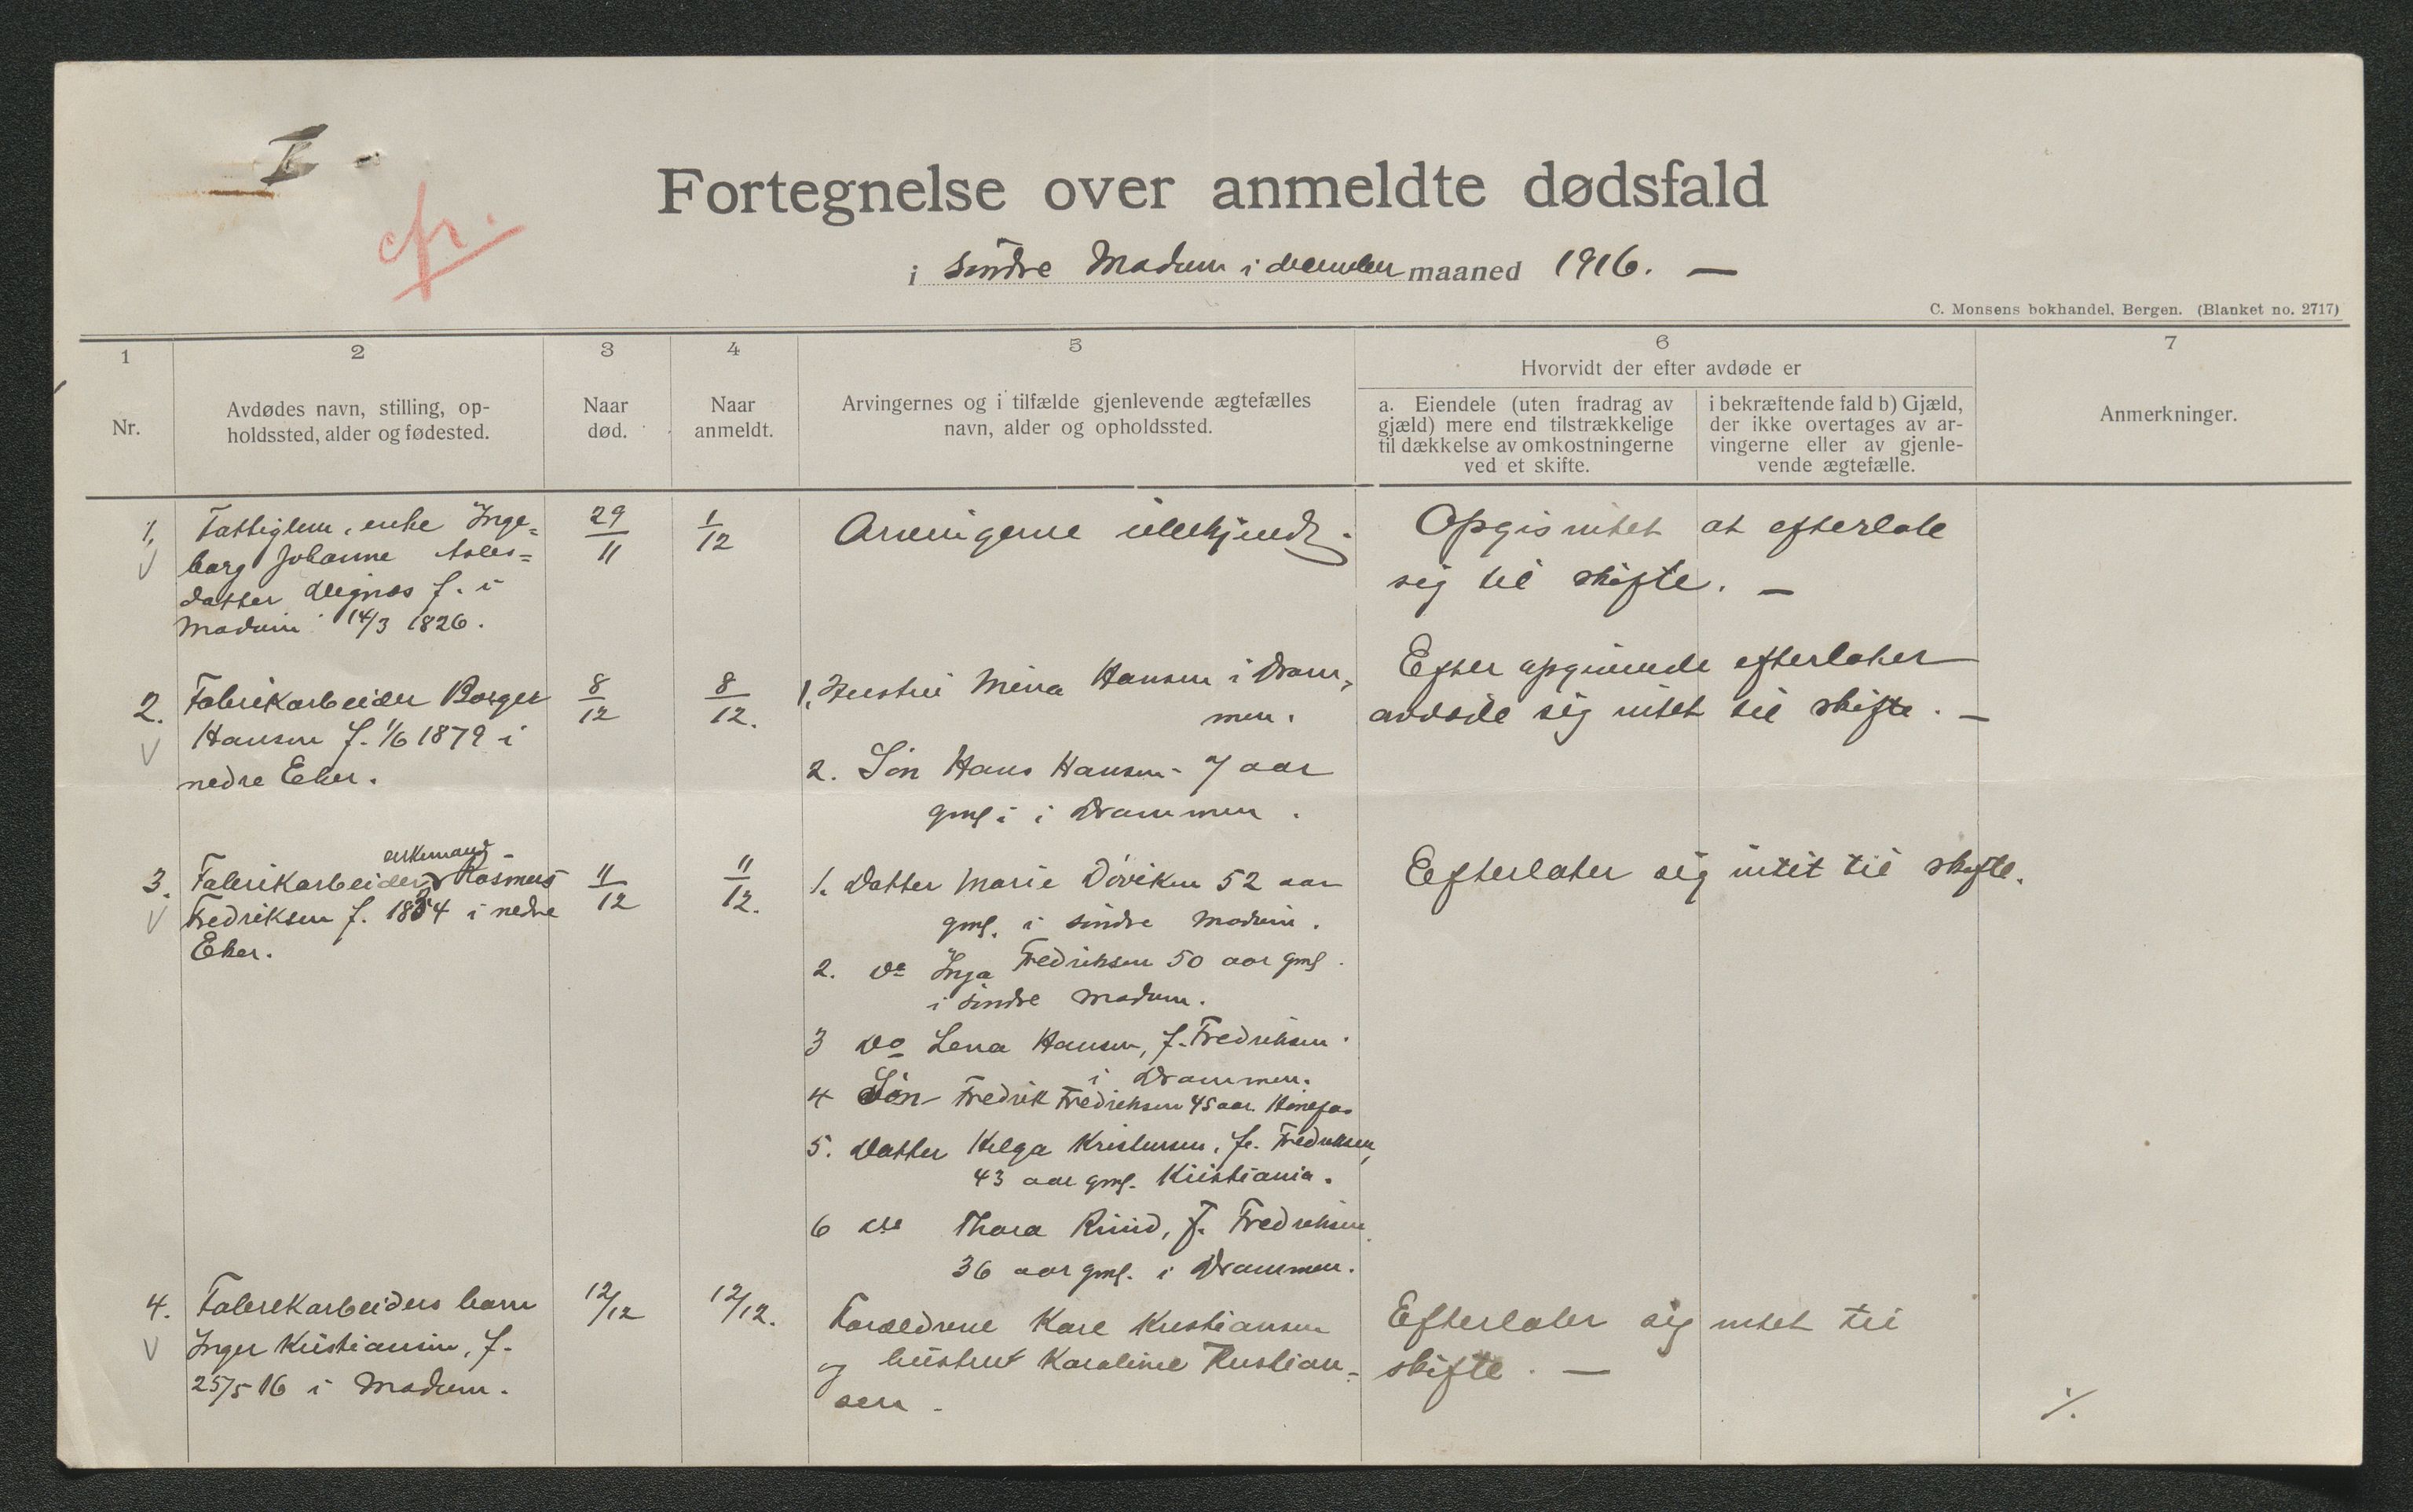 I
cfr.
Fortegnelse over anmeldte dødsfald
i søndre Modum i december maaned 1916. —
C. Monsens bokhandel, Bergen. (Blanket no. 2717)
1
2
3
4
5
6
7
Nr.
Avdødes navn, stilling, op-
holdssted, alder og fødested.
Naar
død.
Naar
anmeldt.
Arvingernes og i tilfælde gjenlevende ægtefælles
navn, alder og opholdssted.
Hvorvidt der efter avdøde er
a. Eiendele (uten fradrag av
gjæld) mere end tilstrækkelige
til dækkelse av omkostningerne
ved et skifte.
i bekræftende fald b) Gjæld,
der ikke overtages av ar-
vingerne eller av gjenle-
vende ægtefælle.
Anmerkninger.
1.
Fattiglem, enke Inge=
borg Johanne
datter f. i
Modum 14/3 1826.
29/11
1/12
Arvingerne ubekjendt.
Opgis intet at efterlate
sig til skifte. —
2.
Fabrikarbeider Borger
Hansen f. 1/6 1879 i
nedre Eker.
8/12
8/12.
1. Hustru Mina Hansen i Dram=
men.
2. Søn Hans Hansen - 7 aar
gml i Drammen.
Efter opgivende efterlater
avdøde sig intet til skifte. —
3.
enkemand
Fabrikarbeider Rasmus
Fredriksen f. 1834 i nedre
Eker.
11/12
11/12.
1. Datter Marie Døviken 52 aar
gml. i søndre Modum.
2. do Inga Fredriksen 50 aar gml.
i søndre Modum.
3 do Lena Hansen, f. Fredriksen.
i Drammen.
4 Søn Fredrik Fredriksen 45 aar. Hønefos
5. Datter Helga Kristensen, f. Fredriksen,
43 aar gml. Kristiania.
6 do Thora Ruud, f. Fredriksen
36 aar gml. i Drammen.
Efterlater sig intet til skifte.
4.
Fabrikarbeiders barn
Inger Kristiansen, f.
25/5 16 i Modum.
12/12
12/12.
Forældrene Kare Kristiansen
og hustru Karoline Kristian=
sen.
Efterlater sig intet til
skifte. —
·/.